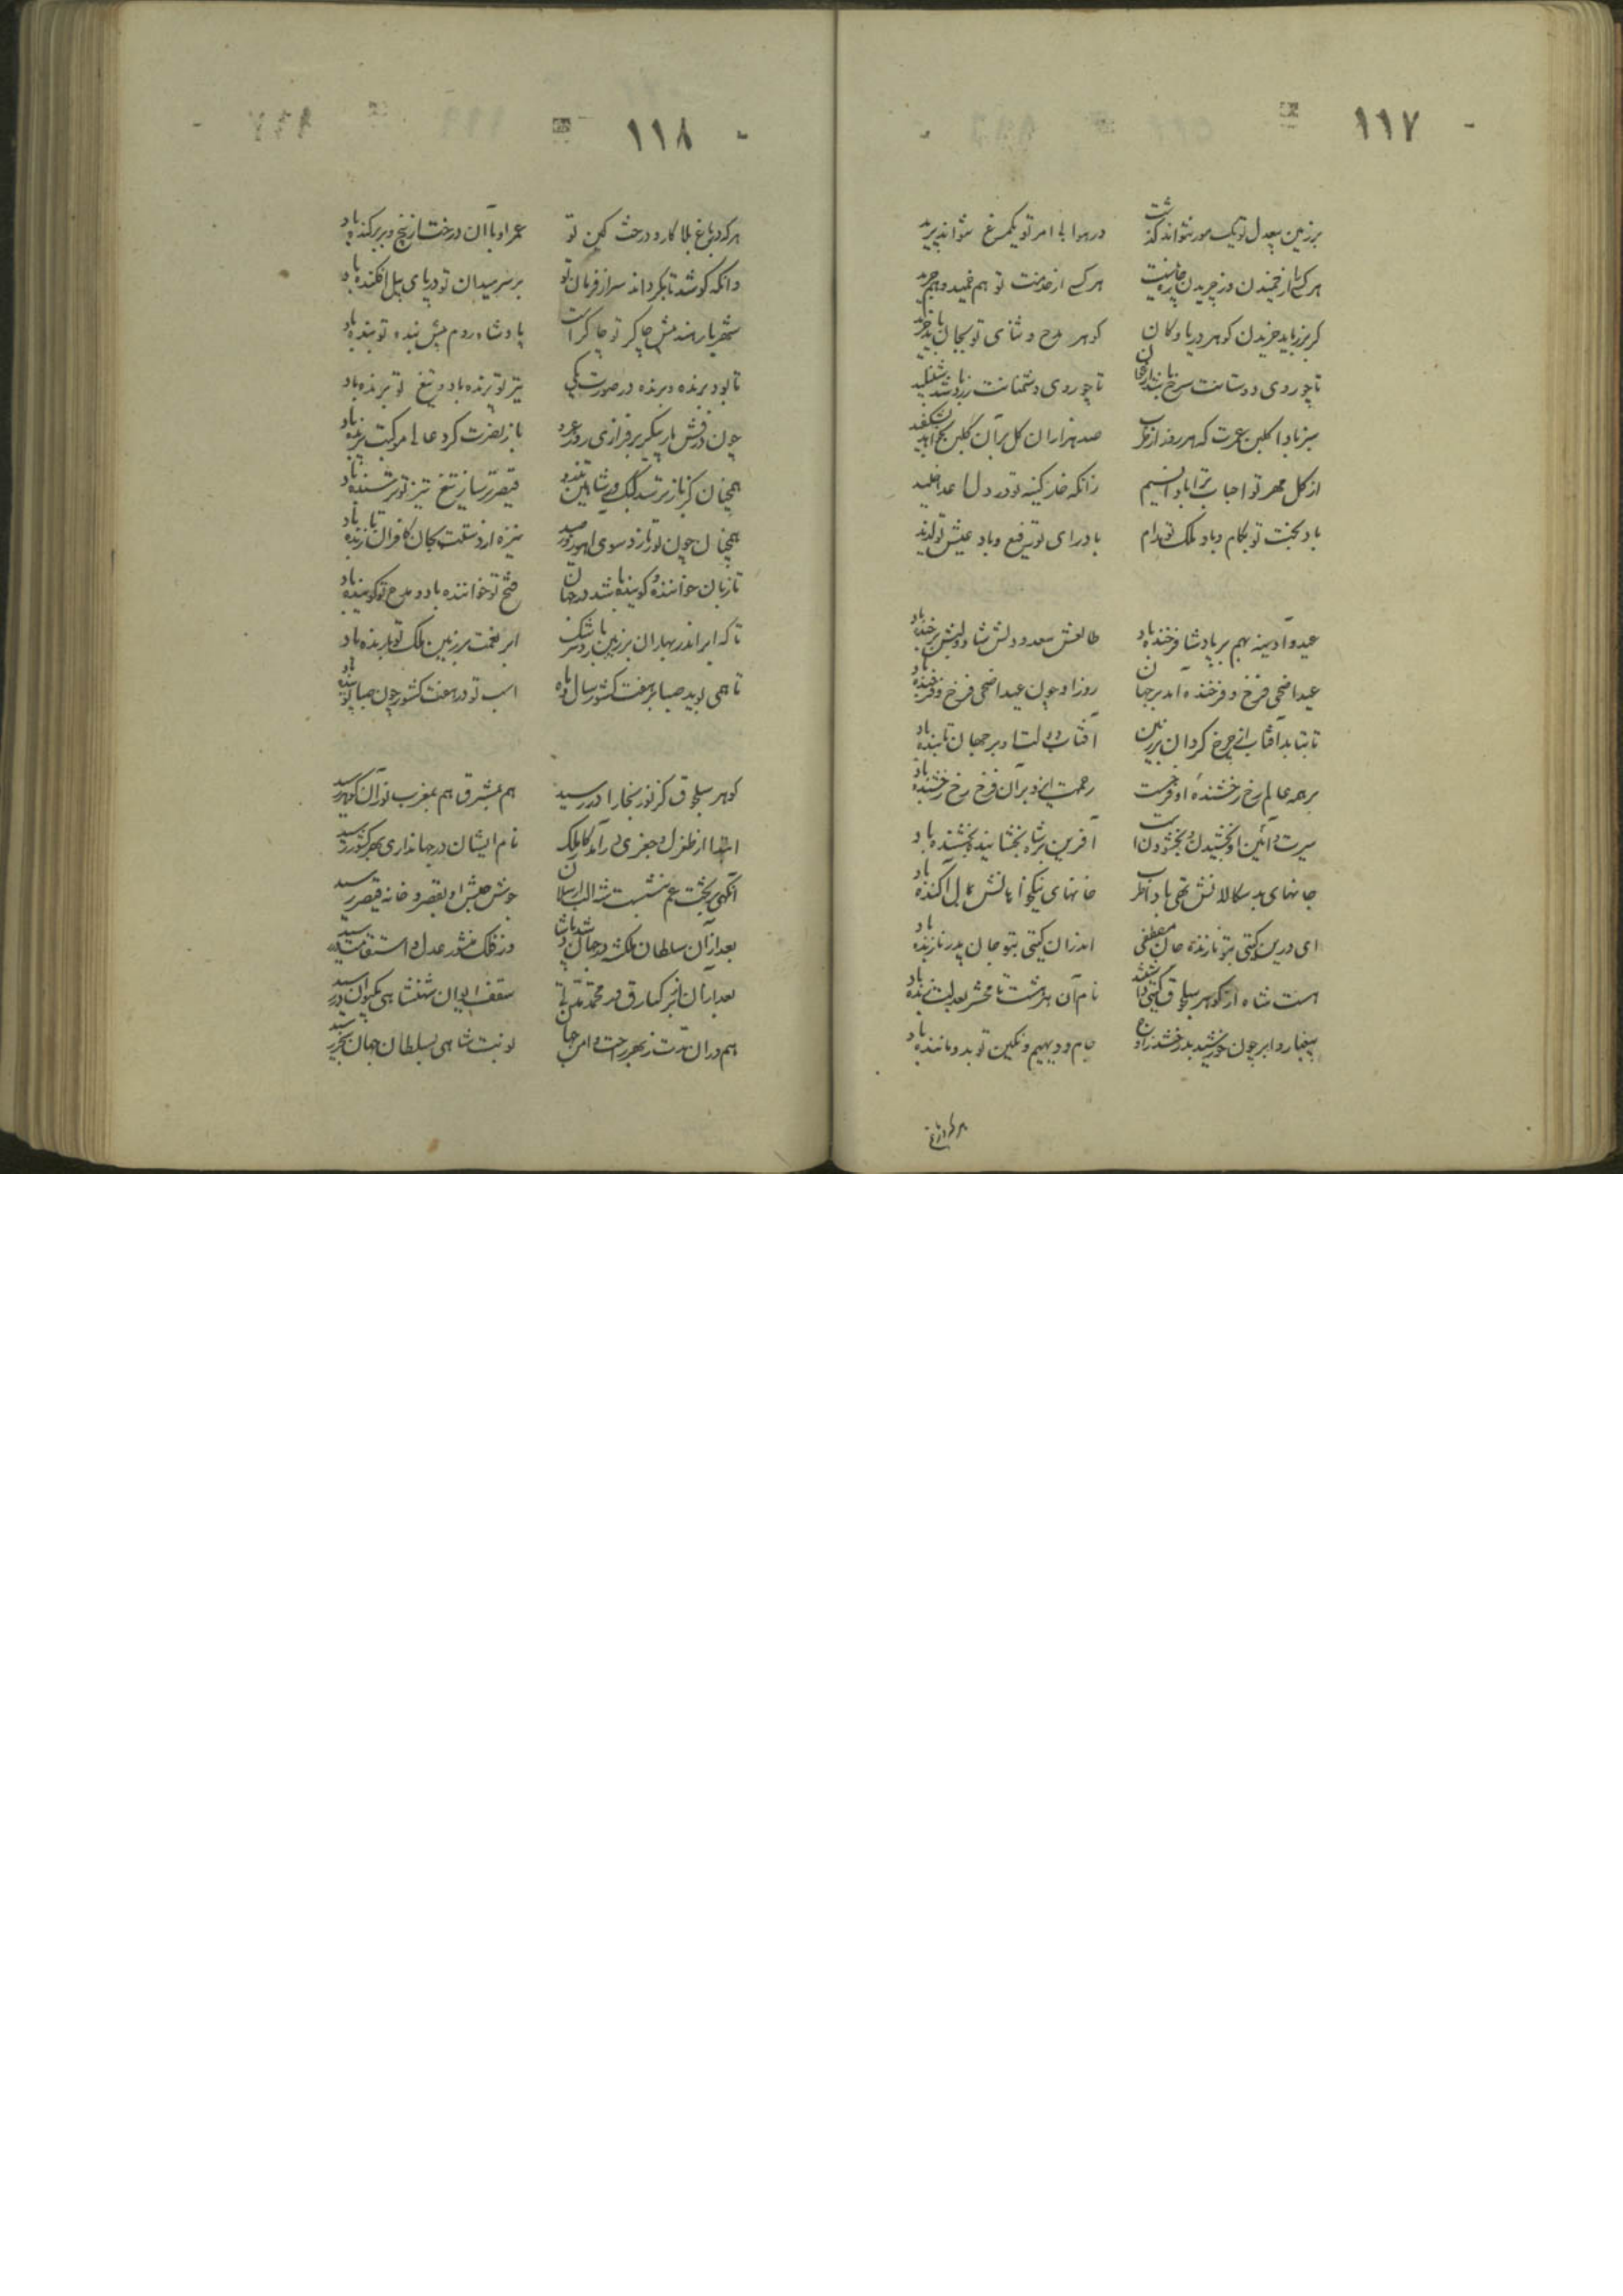 ۱۱۷
برزمین بیعدل تو یک مور نتواند گذشت در هوا بی امر تو یکمرغ نتواند پرید
هر کسی را از خمیدن وز چریدن چاره نیست هر کسی از خدمت تو هم خمید و هم چرید
گر بزر باید خریدن گوهر دریا و کان گوهر مدح و ثنای تو بجان باید خرید
تا چو روی دوستانت سرخ باشد ارغوان تا چو روی دشمنانت زرد باشد شنبلید
سبز بادا گلبن عمرت که هر روز از طرب صد هزاران گل بر آن گلبن بخواهد بشکفید
از گل مهر تو احباب ترا بادا نسیم زانکه خار کینه تو در دل اعدا خلید
باد بختت تو بکام و باد ملک تو مدام باد رای تو رفیع و باد عیش تو لذیذ
عید و آدینه بهم بر پادشا فرخنده باد طالعش سعد و دلش شاد و لبش پرخنده باد
عید اضحی فرخ و فرخنده آمد بر جهان روز او چون عید اضحی فرخ و فرخنده باد
تا بتابد آفتاب از چرخ گردان بر زمین آفتاب دولت او بر جهان تابنده باد
بر همه عالم رخ رخشنده او فرخست رحمت ایزد بر آن فرخ رخ رخشنده باد
سیرت و آئین او بخشیدن و بخشودن است آفرین بر شاه بخشاینده بخشنده باد
جانهای بدسگالانش تهی باد از طرب خانهای نیکخواهانش بمال آکنده باد
ای درین گیتی بتو نازنده جان مصطفی اندران گیتی بتو جان پدر نازنده باد
هست شاه از گوهر سلجوق گیتی را نام آن تا محشر بعدلت زنده باد
جام و دیهیم و نگین تو بدو ماننده باد
هر که در باغ
۱۱۸
هر که در باغ بلا کارد درخت کین تو عمر او با آن درخت از بیخ و بن برکنده باد
وانکه کوشد تا بگرداند سر از فرمان تو بر سر میدان تو در پای پیل افکنده باد
شهریار هند پیش چاکر تو چاکر است پادشاه روم پیش بنده تو بنده باد
تا بود برنده و پرنده در صورت یکی تیر تو پرنده باد و تیغ تو برنده باد
چون درفش مار پیکر برفرازی روز باز نصرت گرد عالی مرکبت پرنده باد
همچنان کز باز ترسد کبک و از شاهین تذرو قیصر ترسا ز تیغ تیز تو ترسنده باد
همچنان چون یوز تازد سوی آهو روز صید نیزه از دستت بجان کافران تازنده باد
تا زبان خواننده و گوینده باشد در جهان فتح تو خواننده باد و مدح تو گوینده باد
تا که ابر اندر بهاران بر زمین بارد سرشک ابر نعمت بر زمین ملک تو بارنده باد
تا همی پوید صبا بر هفت کشور سال و ماه اسب تو در هفت کشور چون صبا پوینده باد
گوهر سلجوق کز نور بخارا در رسید هم بمشرق هم بمغرب نور آن گوهر رسید
ابتدا از طغرل و جغری در آمد کار ملک نام ایشان در جهانداری بهر کشور رسید
آنگهی بر تخت عم بنشست شه الب ارسلان جوش جیش او بقصر و خانه قیصر رسید
بعد از آن سلطان ملکشه در جهان شد پادشا وز فلک منشور عدل و استقامت رسید
بعد از آن بر کیارق در محمد سقف ایوان شهنشاهی بکیوان بر رسید
هم در آن مدت ز بهر راحت و امن جهان نوبت شاهی بسلطان جهان سنجر رسید